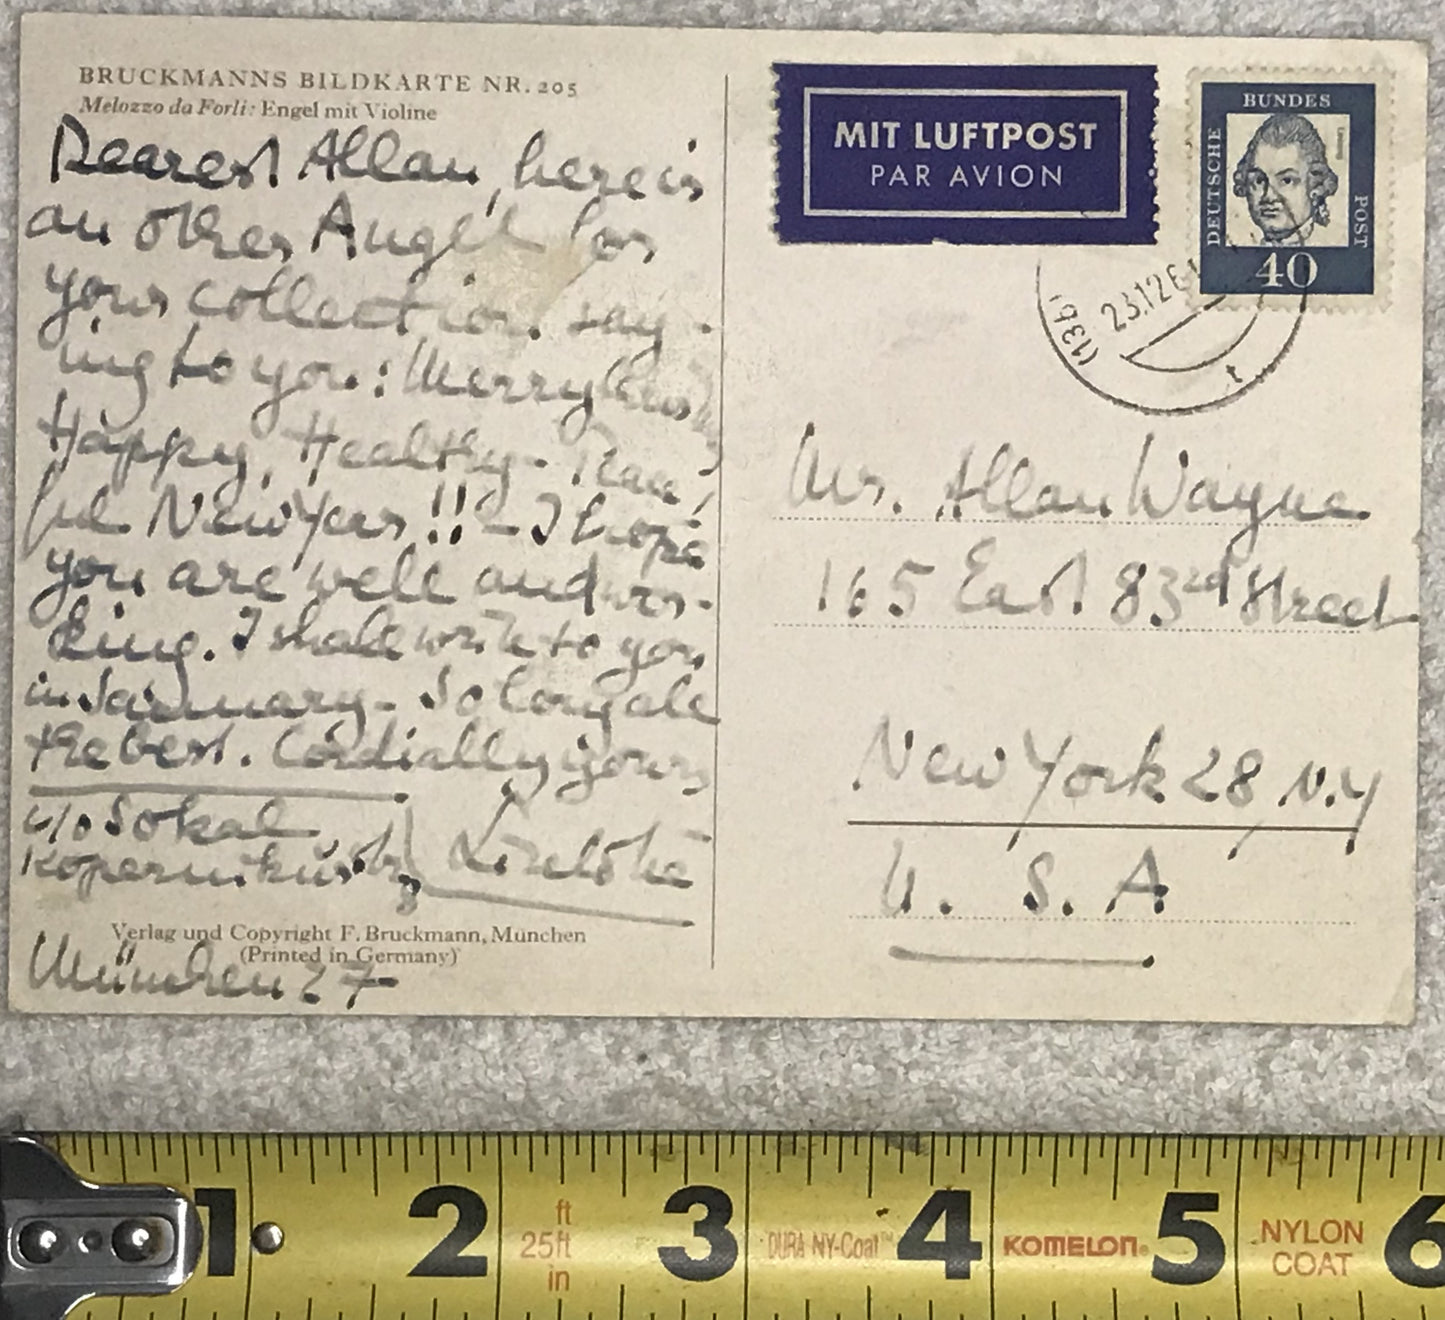 BRUCKMANNS BILDKARTE NR. 205
Melozzo da Forli: Engel mit Violine
Dearest Allan, here is
an other Angel for
your collection say-
ing to you: Merry
Happy, Healthy-
ful New Year!! - I hope
you are well and wor-
king. I shall write to you
in January - So long all
the best. Cordially yours
c/o Sokal
München 27
Verlag und Copyright F. Bruckmann, München
(Printed in Germany)
MIT LUFTPOST
PAR AVION
DEUTSCHE
BUNDES
POST
40
(13b)
23.12.6
t
Mr. Allan Wayne
165 East 83rd Street
New York 28, N.Y
U. S. A
1 2 3 4 5 6
ft
25ft
in
DURA NY-Coat™
KOMELON®
NYLON
COAT